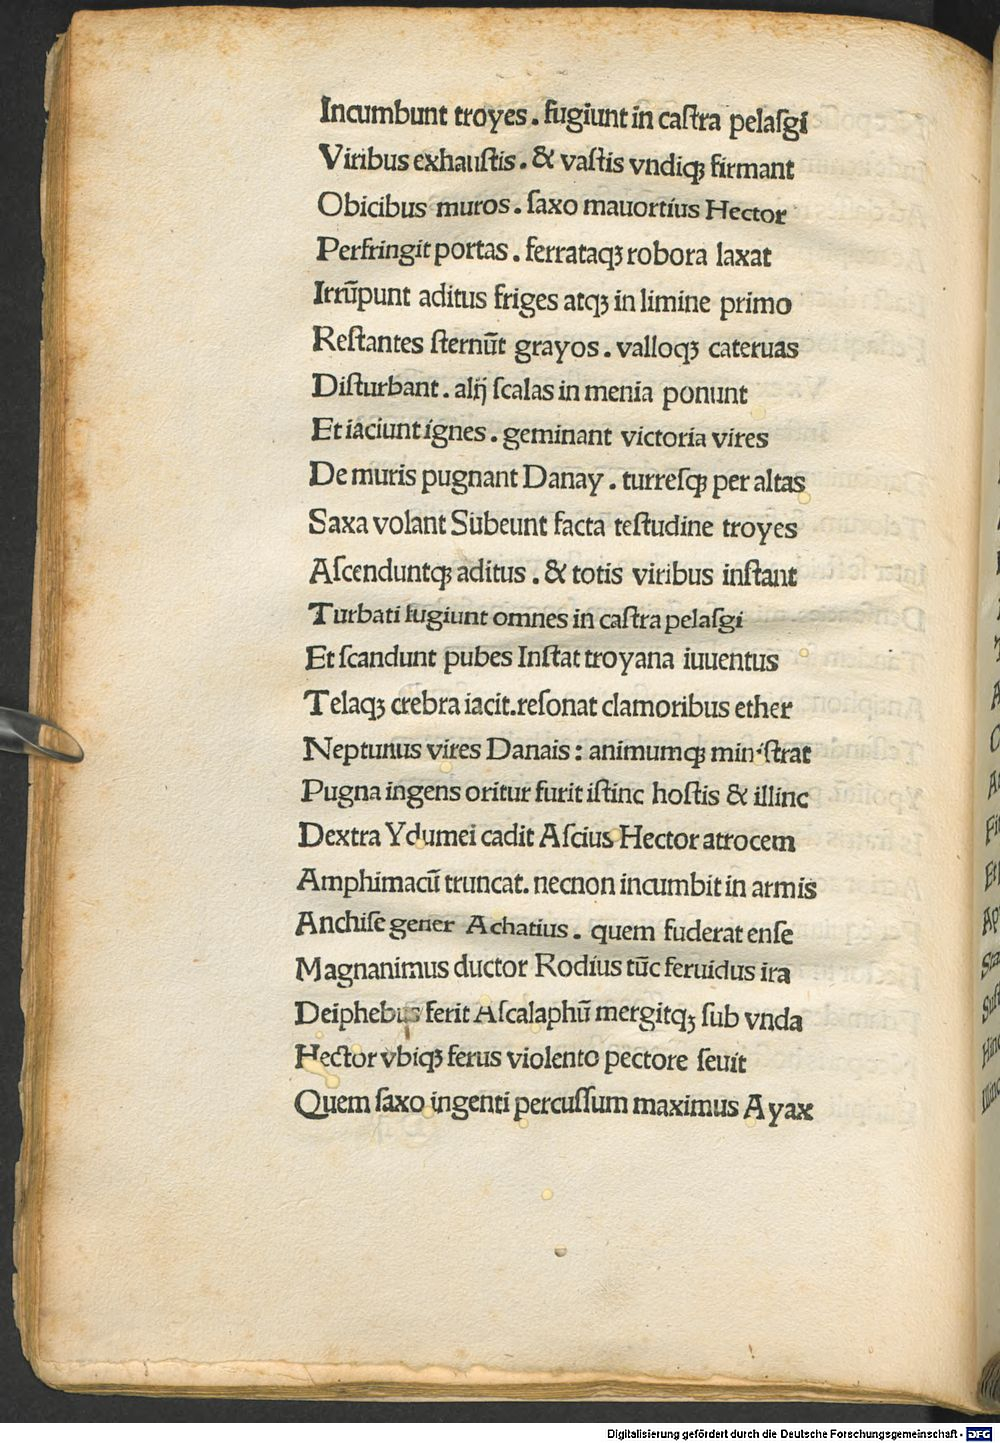 Incumbunt troyes . fugiunt in caſtra pelaſgi
Viribus exhauſtis . & vaſtis vndiqꝫ firmant
Obicibus muros . ſaxo mauortius Hector
Perfringit portas . ferrataqꝫ robora laxat
Irrūpunt aditus friges atqꝫ in limine primo
Reſtantes ſternūt grayos . valloqꝫ cateruas
Diſturbant . alij ſcalas in menia ponunt
Et iaciunt ignes . geminant victoria vires
De muris pugnant Danay . turreſqꝫ per altas
Saxa volant Subeunt facta teſtudine troyes
Aſcenduntqꝫ aditus . & totis viribus inſtant
Turbati fugiunt omnes in caſtra pelaſgi
Et ſcandunt pubes Inſtat troyana iuuentus
Telaqꝫ crebra iacit . reſonat clamoribus ether
Neptunus vires Danais : animumqꝫ miniſtrat
Pugna ingens oritur furit iſtinc hoſtis & illinc
Dextra Ydumei cadit Aſcius Hector atrocem
Amphimacū truncat . necnon incumbit in armis
Anchiſe gener Achatius . quem fuderat enſe
Magnanimus ductor Rodius tūc feruidus ira
Deiphebus ferit Aſcalaphū mergitqꝫ ſub vnda
Hector vbiqꝫ ferus violento pectore ſeuit
Quem ſaxo ingenti percuſſum maximus Ayax
Digitalisierung gefördert durch die Deutsche Forschungsgemeinschaft - DFG